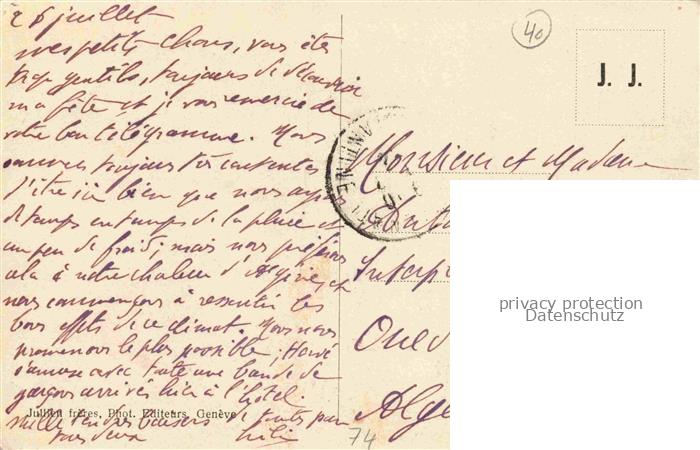 26 juillet
mes petits chous, vous êtes
trop gentils, toujours de
ma fête et je vous remercie de
votre bon télégramme. Nous
sommes toujours très contentes
d'être ici bien que nous ayons
de temps en temps de la pluie et
un peu de froid; mais nous préférons
cela à notre chaleur d'Algérie, et
nous commençons à ressentir les
bons effets de ce climat. Nous nous
promenons le plus possible; Hervé
s'amuse avec toute une bande de
garçons arrivés hier à l'hôtel.
Mille tendres baisers de toutes pour
vous deux
Jullien frères, Phot. Editeurs, Genève
40
J. J.
Monsieur et Madame
Oued
Alge
74
privacy protection
Datenschutz